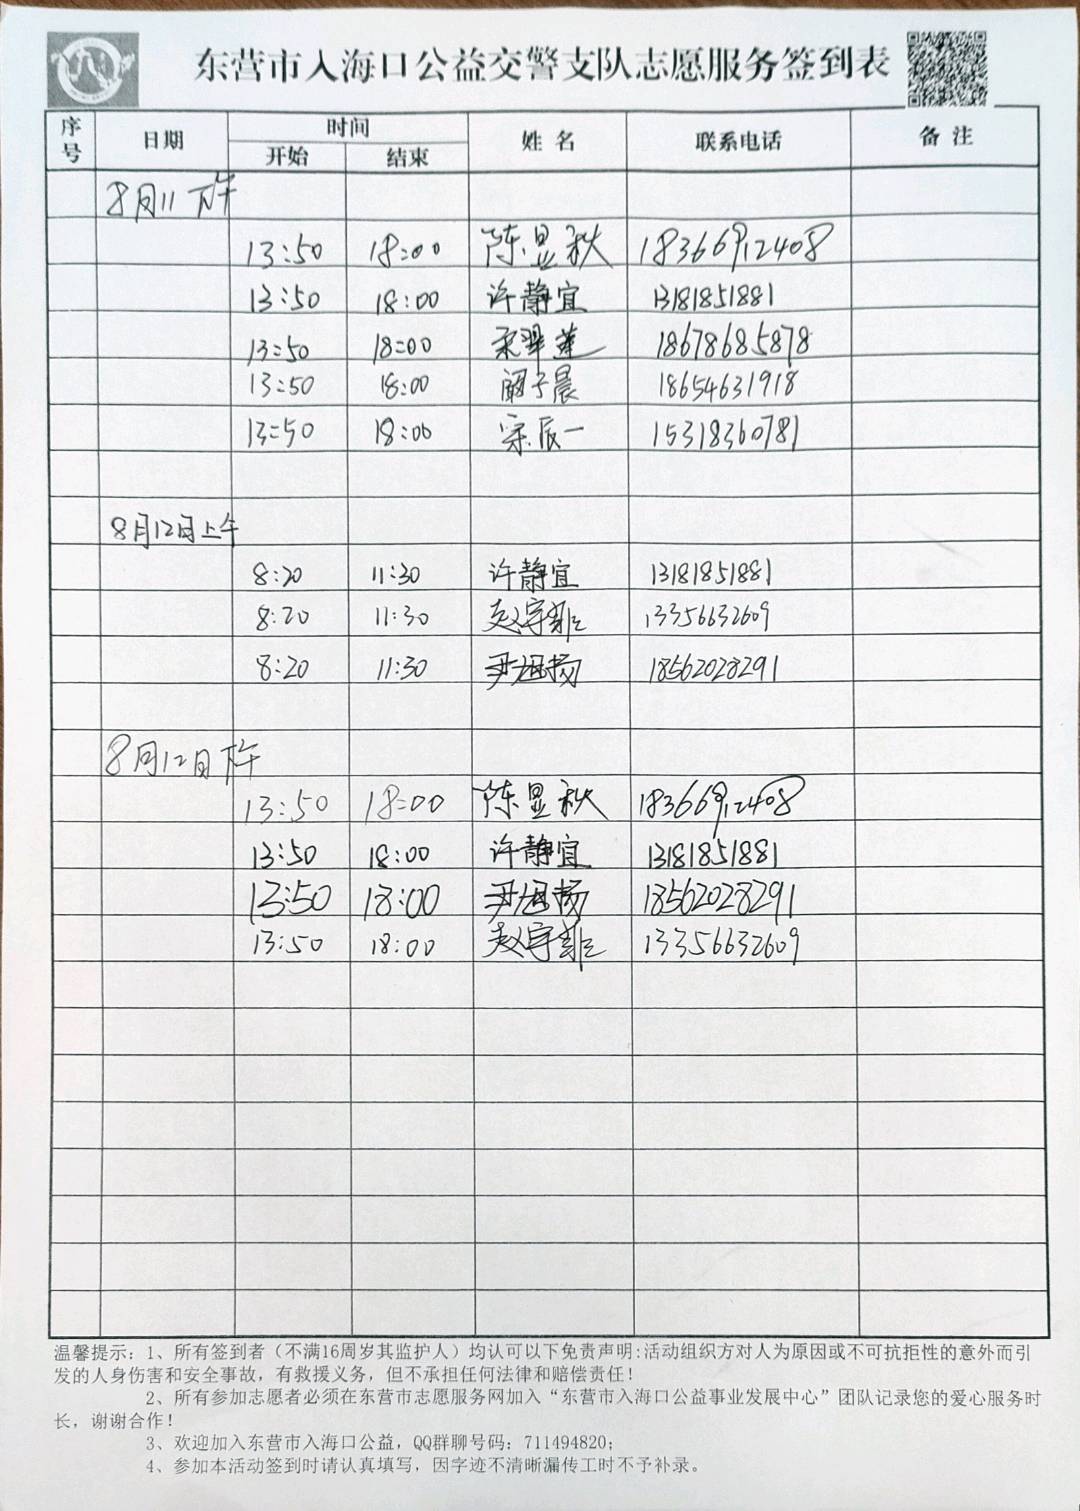 东营市入海口公益交警支队志愿服务签到表
序号 日期 时间 姓名 联系电话 备注
开始 结束
8月11 下午
13:50 18:00 陈显秋 18366912408
13:50 18:00 许静宜 13181851881
13:50 18:00 宋翠莲 18678685878
13:50 18:00 阚子晨 18654631918
13:50 18:00 宗辰一 15318360781
8月12日上午
8:20 11:30 许静宜 13181851881
8:20 11:30 赵宇 13356632609
8:20 11:30 尹旭扬 18562028291
8月12日下午
13:50 18:00 陈显秋 18366912408
13:50 18:00 许静宜 13181851881
13:50 18:00 尹旭扬 18562028291
13:50 18:00 赵宇 13356632609
温馨提示：1、所有签到者（不满16周岁其监护人）均认可以下免责声明:活动组织方对人为原因或不可抗拒性的意外而引
发的人身伤害和安全事故，有救援义务，但不承担任何法律和赔偿责任！
2、所有参加志愿者必须在东营市志愿服务网加入“东营市入海口公益事业发展中心”团队记录您的爱心服务时
长，谢谢合作！
3、欢迎加入东营市入海口公益，QQ群聊号码：711494820；
4、参加本活动签到时请认真填写，因字迹不清晰漏传工时不予补录。